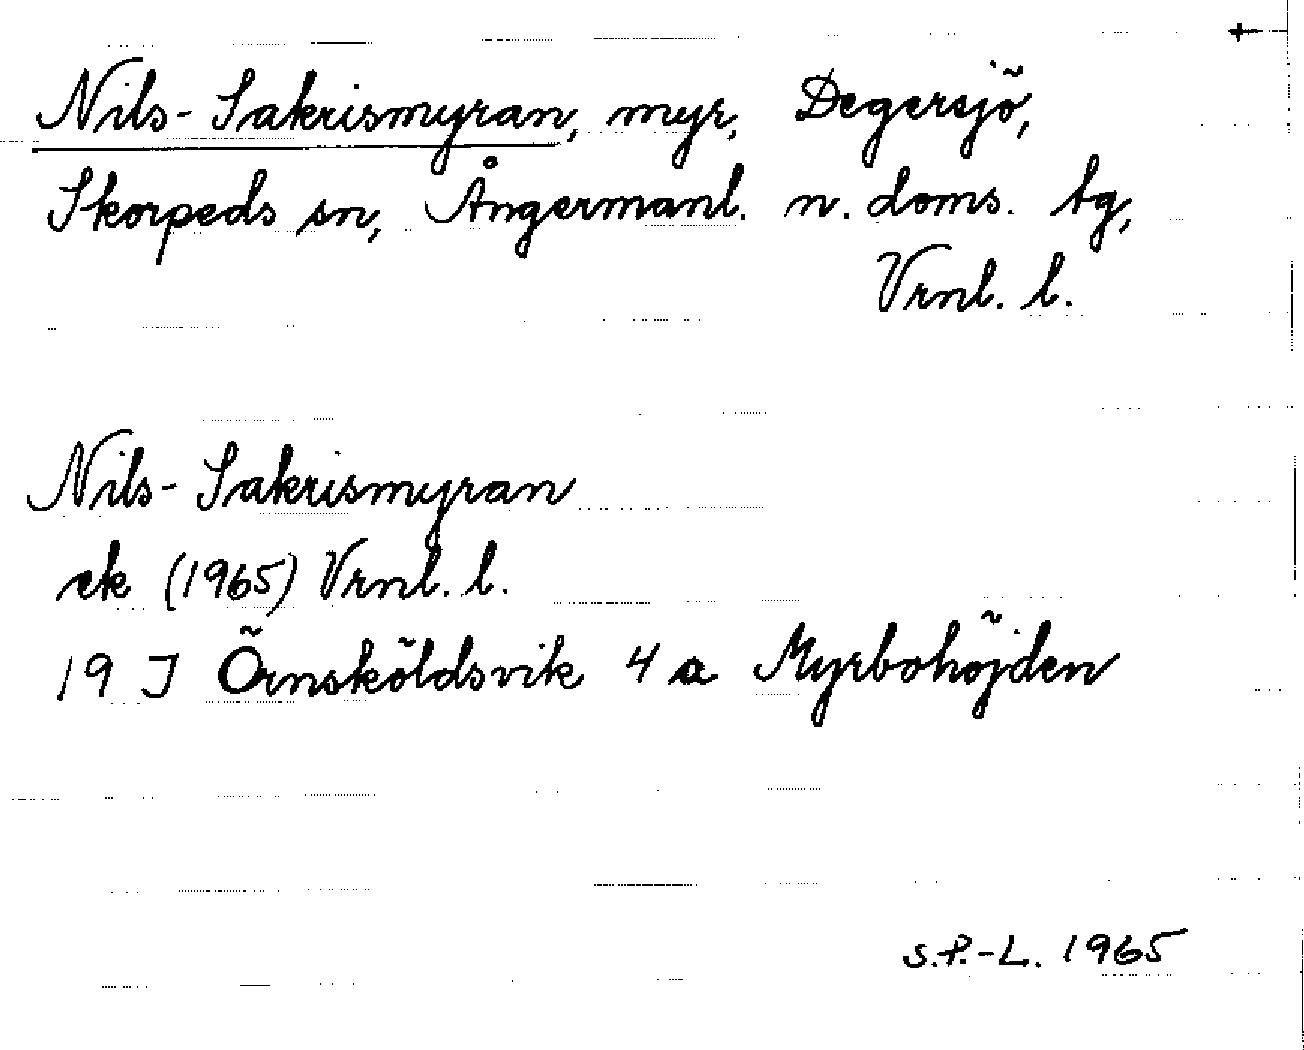 Nils-Sakrismyran, myr, Degersjö,
Skorpeds sn, Ångermanl. n. doms. tg,
Vrnl. l.
Nils-Sakrismyran
ek (1965) Vrnl. l.
19 J Örnsköldsvik 4 a Myrbohöjden
S.P.-L. 1965